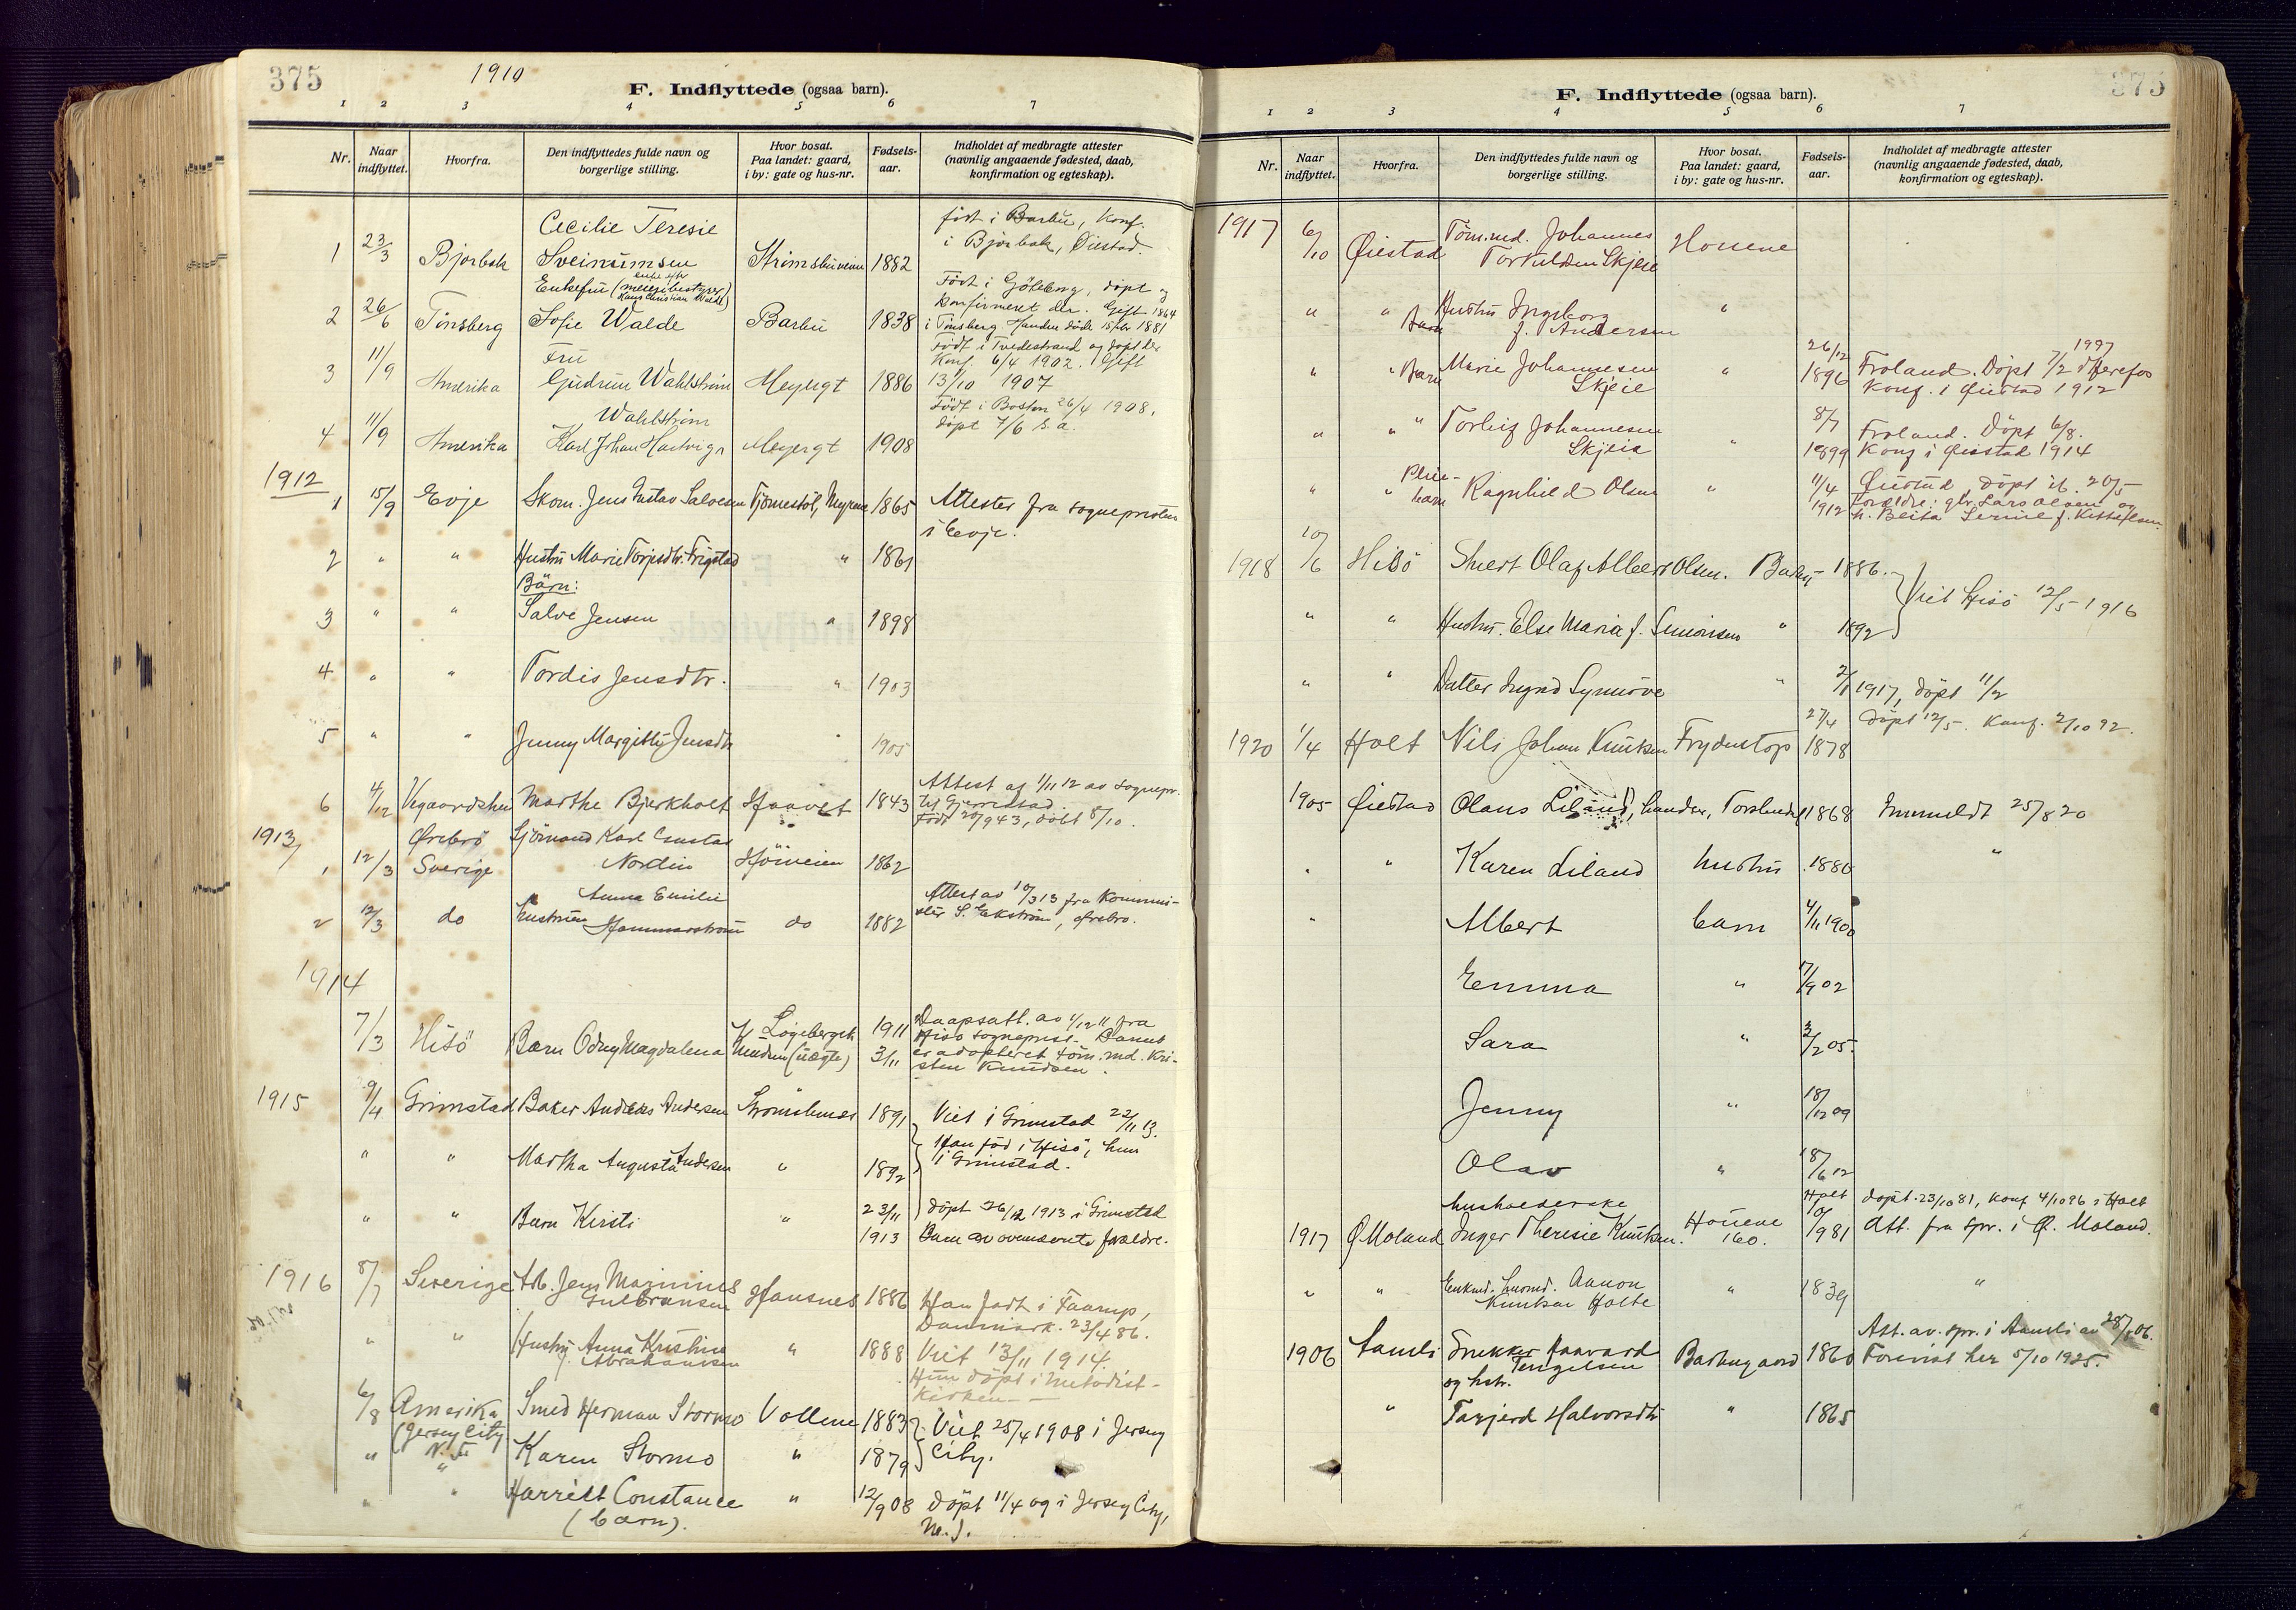 375
1910
F. Indflyttede (ogsaa barn).
1 2 3 4 5 6 7
Nr. Naar indflyttet. Hvorfra. Den indflyttedes fulde navn og borgerlige stilling. Hvor bosat. Paa landet: gaard, i by: gate og hus-nr. Fødsels-aar. Indholdet af medbragte attester (navnlig angaaende fødested, daab, konfirmation og egteskap).
Cecilie Teresie født i Barbu, konf.
1 23/3 Bjorbek Sveinumsen 1882 i Bjorbek, Øiestad.
Enkefru Født i Göteborg, døpt og
konfirmeret der. Gift 1864
2 26/6 Tönsberg Sofie Walde Barbu 1838 i Tönsberg. Manden døde 1881
Fru Født i Tvedestrand og døpt der
Konf. 6/4 1902. Gift
3 11/9 Amerika Gudrun Wahlström Meyergt 1886 13/10 1907
Wahlström Født i Boston 26/4 1908,
døpt 7/6 s.a.
4 11/9 Amerika Karl Johan Hartvig Meyergt 1908
1912
1 15/9 Evje Skom. Jens Gustav Salvesen Tjörnestöl, Myrene 1865 Attester fra sogneprösten
i Evje.
2 " " Hustru Marie Torjusdtr. Frigstad " 1861
Börn:
3 " " Salve Jensen " 1898
4 " " Tordis Jensdtr. " 1903
5 " " Jenny Margitte Jensdtr " 1905
Attest af 1/11 12 av sognepr.
6 4/12 Vegaardshei Marthe Bjerkholt Haavet 1843 til Gjerrestad.
Født 20/9 43, döbt 8/10.
1913
Örebrö Sjömand Karl Gustav
1 12/3 Sverige Nordin Höiveien 1862
Anna Emilie Attest av 10/3 13 fra Kommini-
2 12/3 do hustruen Hammarström do 1882 ster S. Ekström, Örebro.
1914
7/3 Hisö Barn Odny Magdalena K. Lögeberget Knudsen (uægte) 1911 3/11 Daapsatt. av 1/12 11 fra
Hisö sognepræst. Barnet
er adopteret töm.md. Kri-
sten Knudsen.
1915 9/4 Grimstad Baker Anders Andersen Strömsbunes 1891 Viet i Grimstad 22/11 13.
Han föd i Hisö, hun
" " Martha Augusta Andersen " 1892 i Grimstad.
" " Barn Kirsti " 23/11 1913 döpt 26/12 1913 i Grimstad
Barn av ovennevnte forældre.
1916 8/7 Sverige Arb. Jens Magnius
Gulbransen Hansnes 1886 Han født i Faarup,
Danmark. 23/4 86.
" " Hustru Anna Kristine
f. Abrahamsen " 1888 Viet 13/11 1914.
Hun døpt i Metodist-
kirken
6/8 Amerika Smed Herman Stormo Vollene 1883 Viet 25/4 1908 i Jersey
(Jersey City
" N.J. Karen Stormo " 1879 City.
" " Harriett Constance " 12/9 08 Döpt 11/4 09 i Jersey City,
(barn). N.J.
375
F. Indflyttede (ogsaa barn).
1 2 3 4 5 6 7
Nr. Naar indflyttet. Hvorfra. Den indflyttedes fulde navn og borgerlige stilling. Hvor bosat. Paa landet: gaard, i by: gate og hus-nr. Fødsels-aar. Indholdet af medbragte attester (navnlig angaaende fødested, daab, konfirmation og egteskap).
1917 6/10 Øiestad Töm.md. Johannes Houene
Torkildsen Skjeie
" " Hustru Ingeborg "
Barn f. Andersen
26/12 1897
" " Barn Marie Johannesen " 1896 Froland. Döpt 7/2 i Herefos
Skjeie Konf. i Øiestad 1912
8/7
" " " Torleif Johannesen " 1899 Froland. Döpt 6/8.
Skjeie Konf i Øiestad 1914
Pleie-
" " barn Ragnhild Olsen " 11/4 1912 Øiestad döpt 20/5
Forældre: Lars Olsen og
1918 10/6 Hisö Olaf Albert Olsen. Barbu 1886. Viet Hisö 12/5 1916
" " Hustru. Else Maria f. Simonsen " 1892
" " Datter Ingrid Synnöve " 2/1 1917, döpt 11/2
27/4 döpt 12/5. Konf. 2/10 92.
1920 1/4 Holt Nils Johan Knutsen Frydentop 1878
1905 Øiestad Olaus Liland, 1868 Innmeldt 25/8 20
" Karen Liland hustru 1880 "
" Albert barn 4/11 1900
Emma " 7/9 02
Sara " 3/2 05.
Jenny " 18/12 09
Olav " 18/6 12
husholderske Holt döpt. 23/10 81, konf 4/10 96 i Holt
1917 Ø. Moland Inger Theresie Knutsen. Houene 160. 9/9 81 Att. fra spr. i Ø. Moland.
" " Enkmd. Aanon " 1839 "
Knutsen Holte
Att. av. spr. i Aamli av 28/5 06.
1906 Aamli Snekker Haavard Barbugaard 1860 Forevist her 5/10 1925.
Tengelsen
og hstr.
" Tarjerd Halvorsdtr " 1865